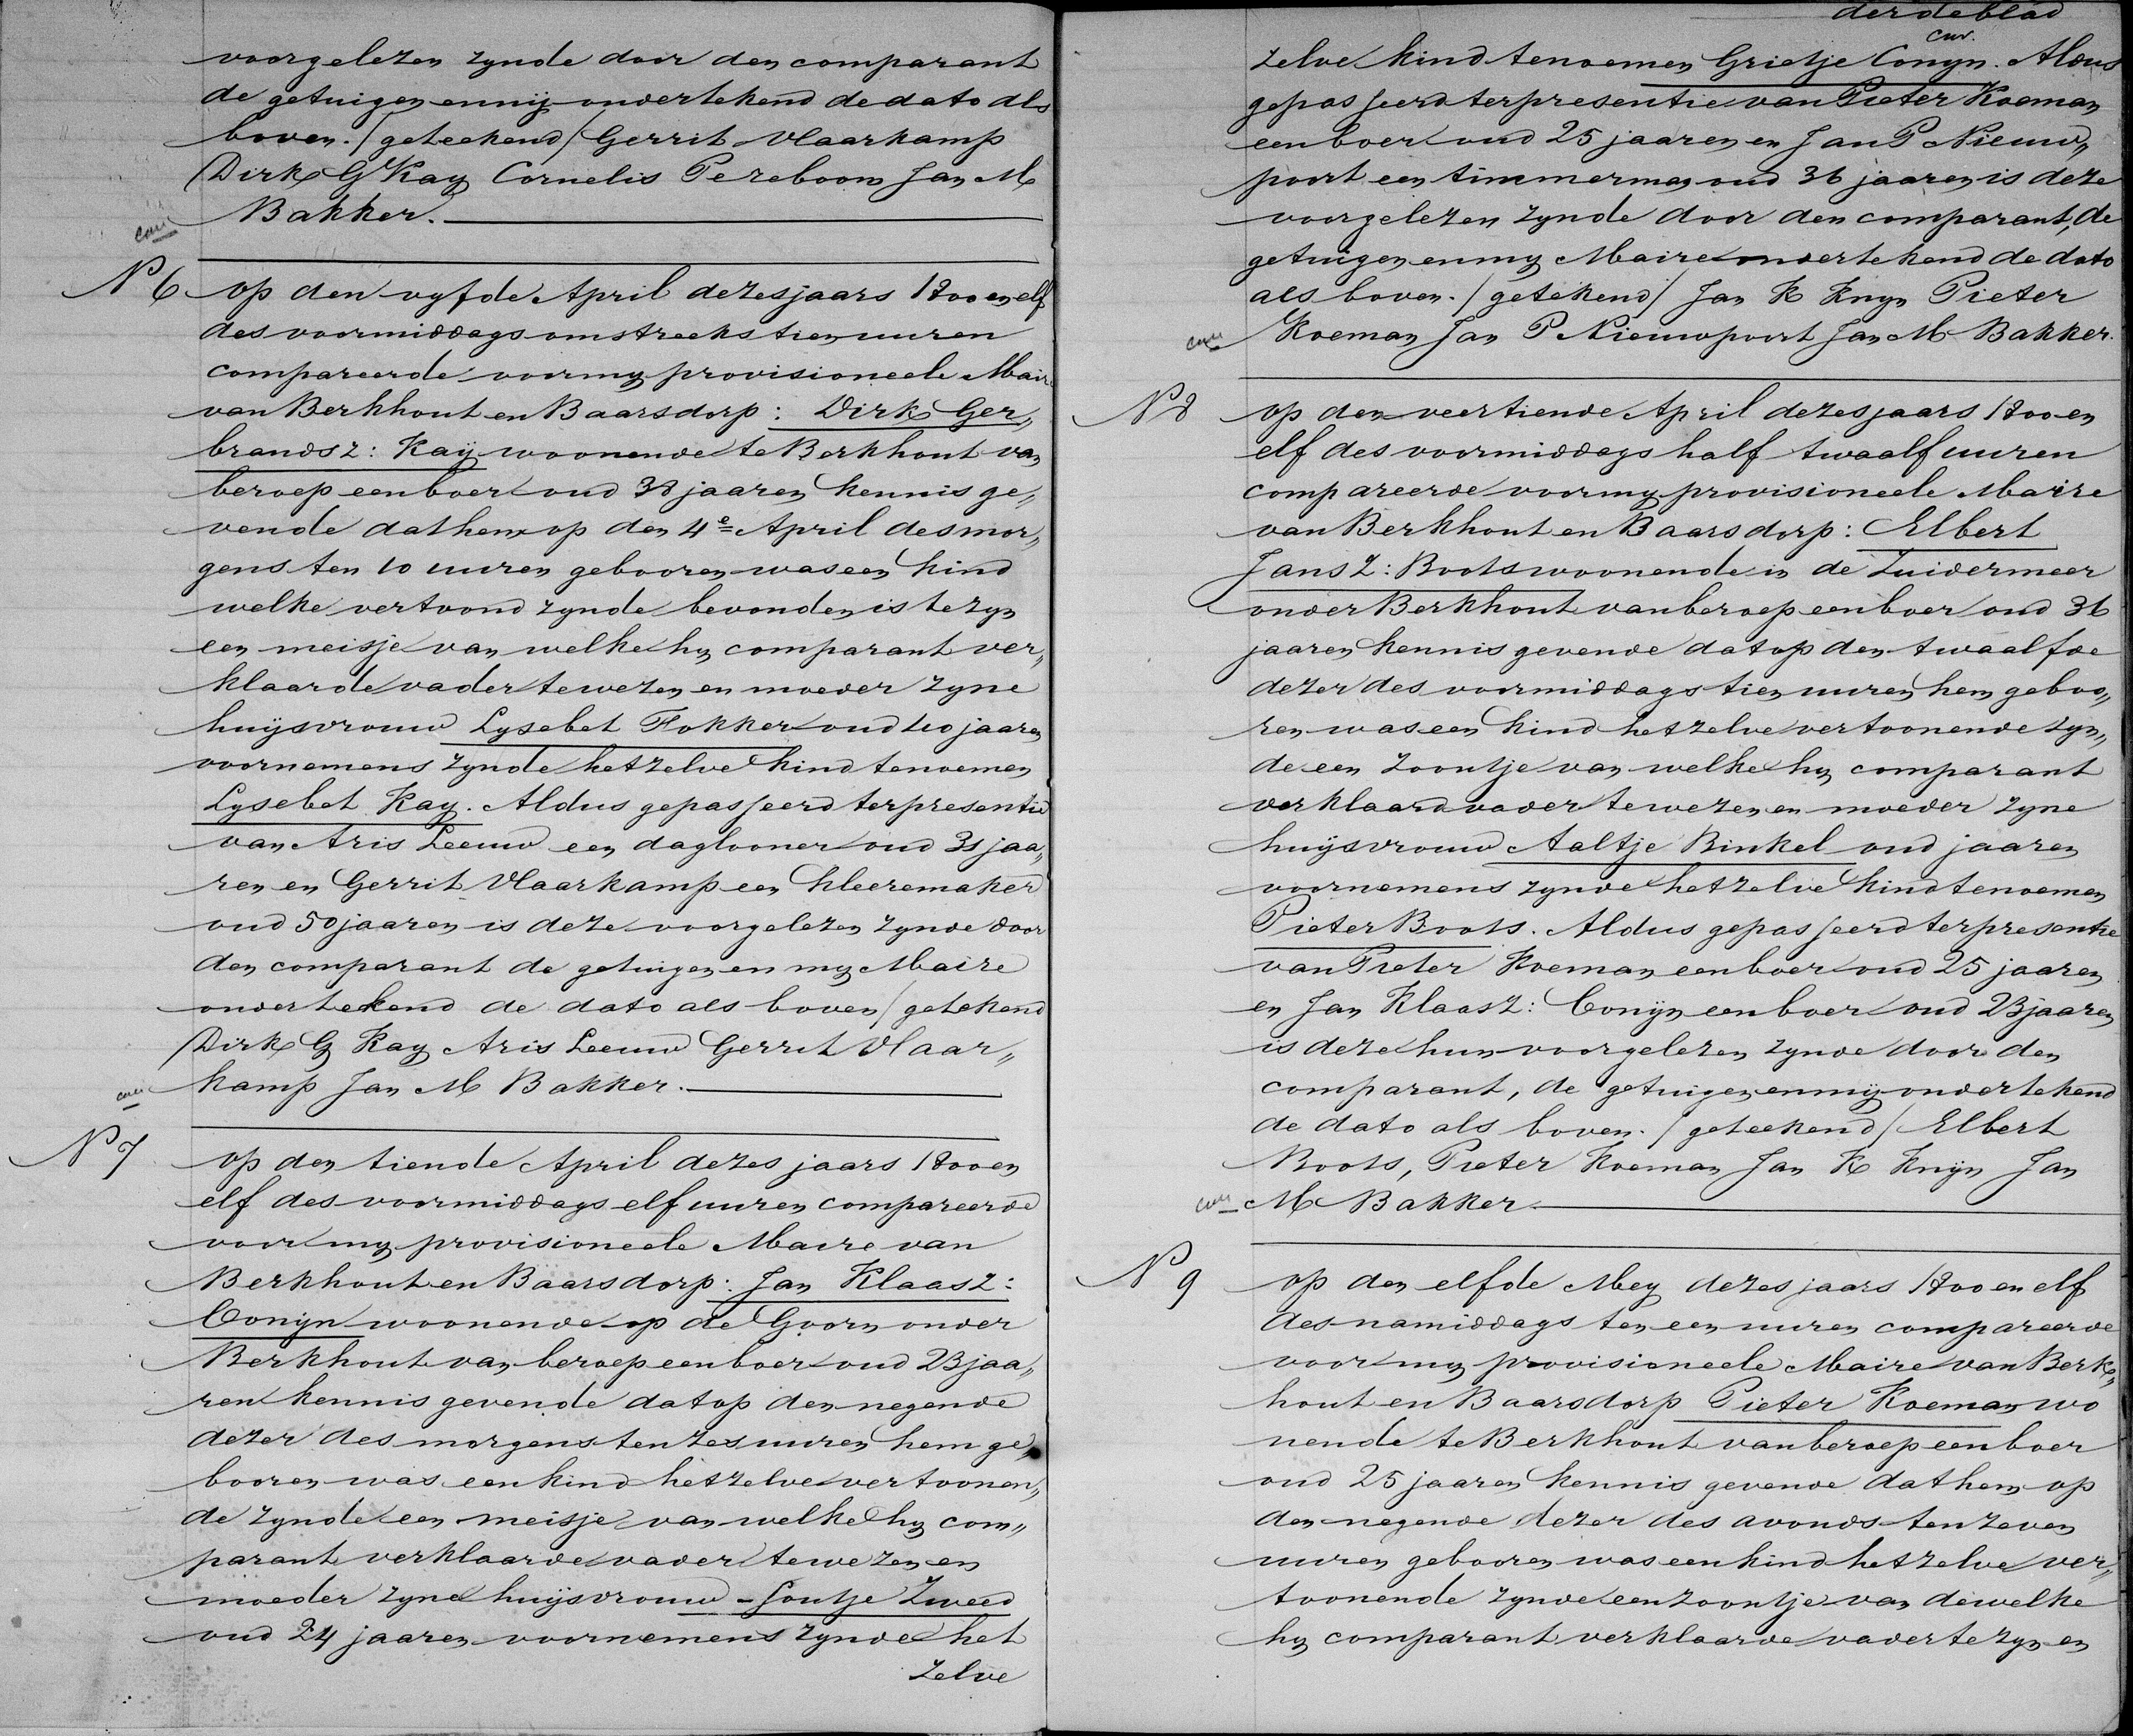 voorgelezen zynde door den comparant
de getuigen en mij ondertekend de dato als
boven. / geteekend / Gerrit Vlaarkamp
Dirk G Kay Cornelis Pereboom Jan M
Bakker.
N 6 op den vyfde April dezes jaars 1800 en elf
des voormiddags omstreeks tien uuren
compareerde voor my provisioneele Maire
van Berkhout en Baarsdorp: Dirk Ger„
brandsz: Kaij woonende te Berkhout van
beroep een boer oud 38 jaaren kennis ge„
vende dat hem op den 4e April des mor„
gens ten 10 uuren gebooren was een kind
welke vertoond zynde bevonden is te zyn
een meisje van welke hy comparant ver„
klaarde vader te wezen en moeder zyne
huijsvrouw Lysebet Fokker oud 40 jaaren
voornemens zynde hetzelve kind te noemen
Lysebet Kay. Aldus gepasseerd ter presentie
van Aris Leeuw een daglooner oud 31 jaa„
ren en Gerrit Vlaarkamp een kleeremaker
oud 50 jaaren is deze voorgelezen zynde door
den comparant de getuigen en my Maire
ondertekend de dato als boven / getekend
Dirk G Kay Aris Leeuw Gerrit Vlaar„
kamp Jan M Bakker.
N 7 op den tiende April dezes jaars 1800 en
elf des voormiddags elf uuren compareerde
voor my provisioneele Maire van
Berkhout en Baarsdorp: Jan Klaasz:
Conijn woonende op de Goorn onder
Berkhout van beroep een boer oud 23 jaa„
ren kennis gevende dat op den negende
dezer des morgens ten zes uuren hem ge„
booren was een kind hetzelve vertoonen„
de zynde een meisje van welke hy com„
parant verklaarde vader te wezen en
moeder zyne huijsvrouw Soutje Zweed
oud 24 jaaren voornemens zynde het
zelve
derde blad
zelve kind te noemen Grietje Conyn. Aldus
gepasseerd ter presentie van Pieter Koeman
een boer oud 25 jaaren en Jan P Nieuw„
poort een timmerman oud 36 jaaren is deze
voorgelezen zynde door den comparant, de
getuigen en my Maire ondertekend de dato
als boven. / getekend / Jan K Knyn Pieter
Koeman Jan P Nieuwpoort Jan M Bakker.
N 8 op den veertiende April dezes jaars 1800 en
elf des voormiddags half twaalf uuren
compareerde voor my provisioneele Maire
van Berkhout en Baarsdorp: Elbert
Jansz: Boots woonende in de Zuidermeer
onder Berkhout van beroep een boer oud 36
jaaren kennis gevende dat op den twaalfde
dezer des voormiddags tien uuren hem geboo„
ren was een kind hetzelve vertoonende zyn„
de een zoontje van welke hy comparant
verklaard vader te wezen en moeder zyne
huijsvrouw Aaltje Binkel oud jaaren
voornemens zynde hetzelve kind te noemen
Pieter Boots. Aldus gepasseerd ter presentie
van Pieter Koeman een boer oud 25 jaaren
en Jan Klaasz: Conijn een boer oud 23 jaaren
is deze hun voorgelezen zynde door den
comparant, de getuigen en mij ondertekend
de dato als boven. / geteekend / Elbert
Boots, Pieter Koeman Jan K Knijn Jan
M Bakker.
N 9 op den elfde Mey dezes jaars 1800 en elf
des namiddags ten een uuren compareerde
voor my provisioneele Maire van Berk„
hout en Baarsdorp Pieter Koeman wo
nende te Berkhout van beroep een boer
oud 25 jaaren kennis gevende dat hem op
den negende dezer des avonds ten zeven
uuren gebooren was een kind hetzelve ver„
toonende zynde een zoontje van dewelke
hy comparant verklaarde vader te zyn en